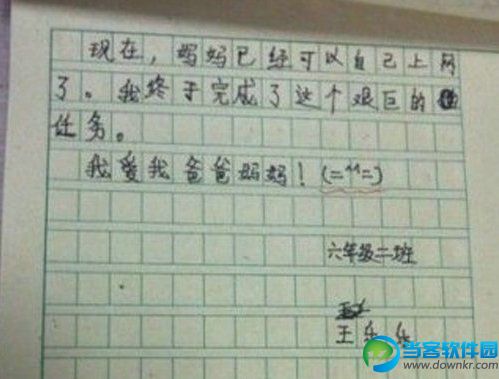 现在，妈妈已经可以自己上网
了。我终于完成了这个艰巨的
任务。
我爱我爸爸妈妈！(=^^=)
六年级二班
王乐乐
当客软件园
www.downkr.com